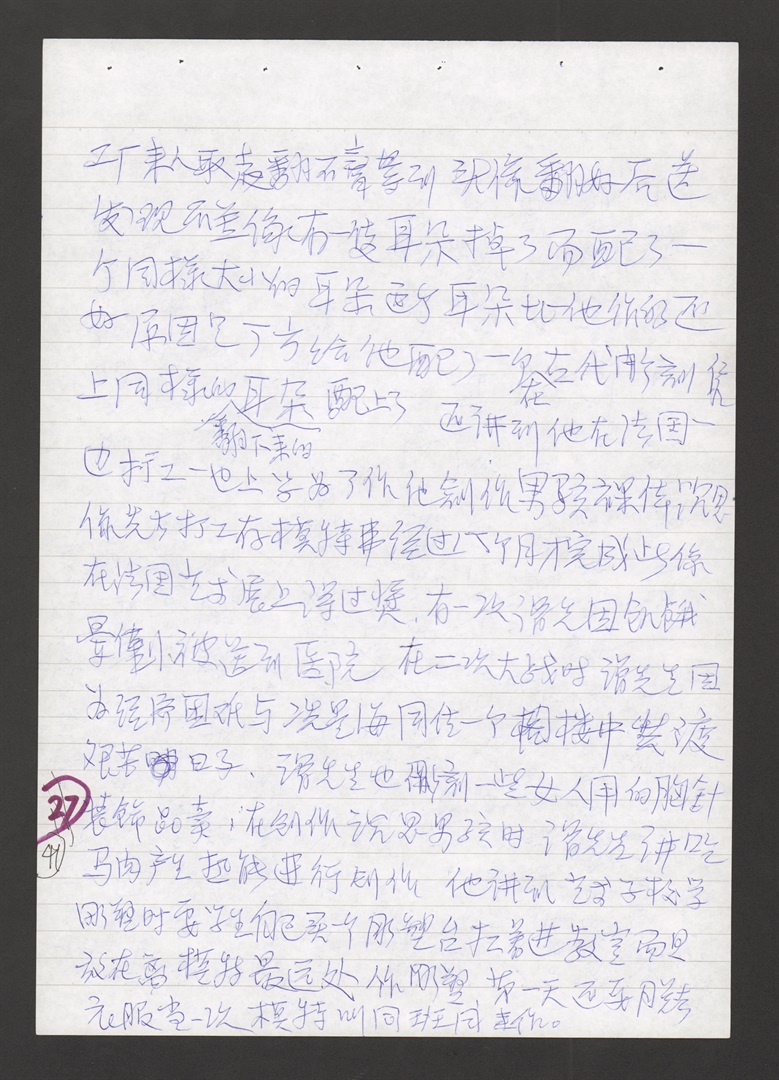 工厂来人取走翻石膏等到 头像翻好后送
发现 头像有一支耳朵掉了而配了一
个同样大小的耳朵 两个耳朵比他作的还
好 原因是工方给他配了一个在古代雕刻
上同样的耳朵配上了 还讲到他在法国一
翻下来的
边打工一边上学为了作他创作男孩裸体沉思
像先去打工存模特费经过八个月才完成此像
在法国艺术展上得过奖. 有一次滑先生因饥饿
晕倒被送到医院 在二次大战时 滑先生因
为经济困难与冼星海同住一个阁楼中 渡
艰苦日子. 滑先生也雕刻一些女人用的胸針
装饰品卖, 在创作沉思男孩时 滑先生讲吃
马肉产生热能进行创作 他讲到艺术学校学
雕塑时要学生自己买一个雕塑台扛着进教室而且
放在离模特最远处作雕塑 第一天还要脱去
衣服当一次模特叫同班同 作。
27
41